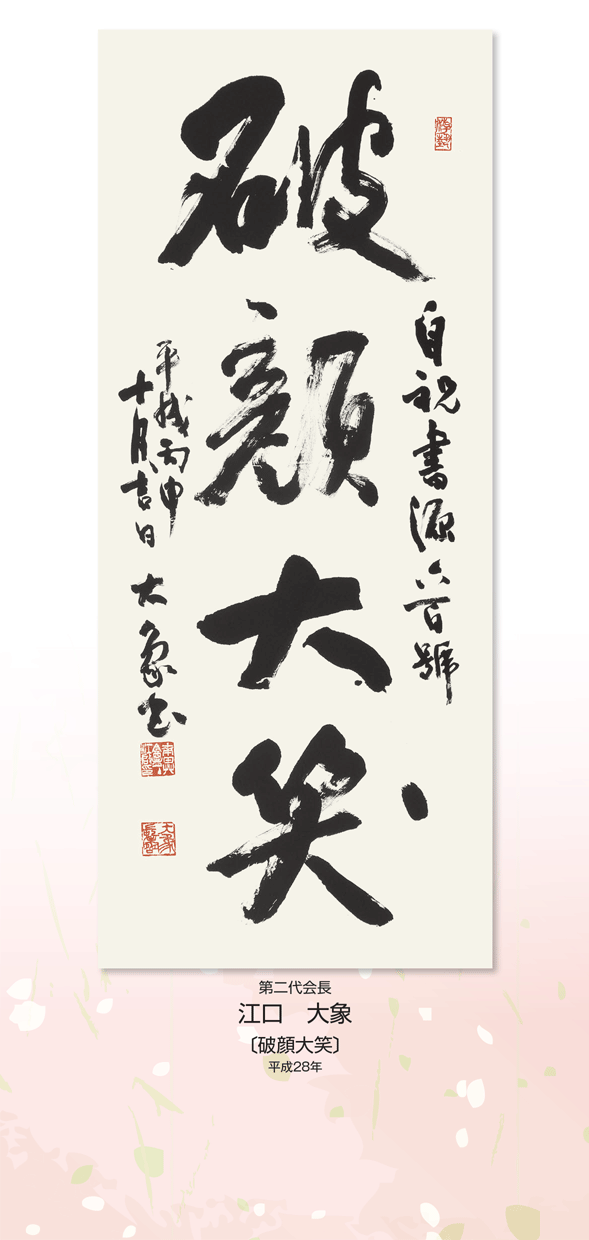 破顔大笑
自祝書源六百號
平成丙申
十月吉日 大象书
第二代会長
江口　大象
〔破顔大笑〕
平成28年